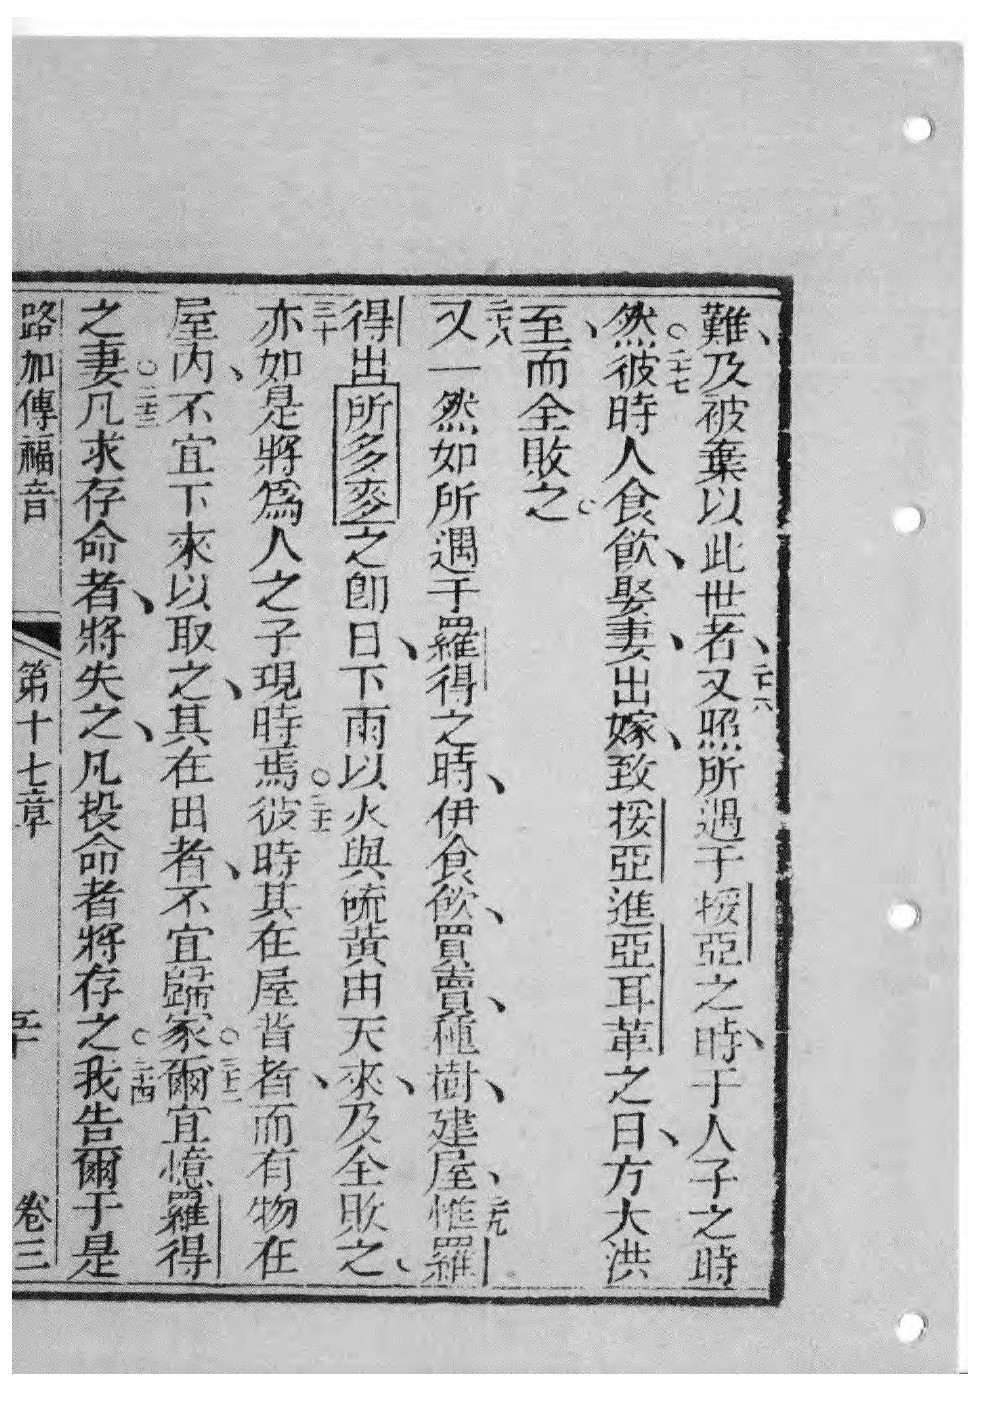 難、及被棄以此世者、二十六又照所遇于挼亞之時、于人子之時
然○二十七彼時人食飲、娶妻、出嫁、致挼亞進亞耳革之日、方大洪
至、而全敗之。
又二十八一然如所遇于羅得之時、伊食飲、買賣、種樹、建屋、二十九惟羅
得出所多麥之卽日、下雨以火與硫黃由天來、及全敗之、
三十亦如是將爲人之子現時焉○三十一彼時其在屋背者、而有物在
屋內、不宜下來以取之、其在田者、不宜歸家○三十二爾宜憶羅得
之妻○三十三凡求存命者、將失之、凡投命者將存之○三十四我告爾于是
路加傳福音 第十七章 五十 卷三